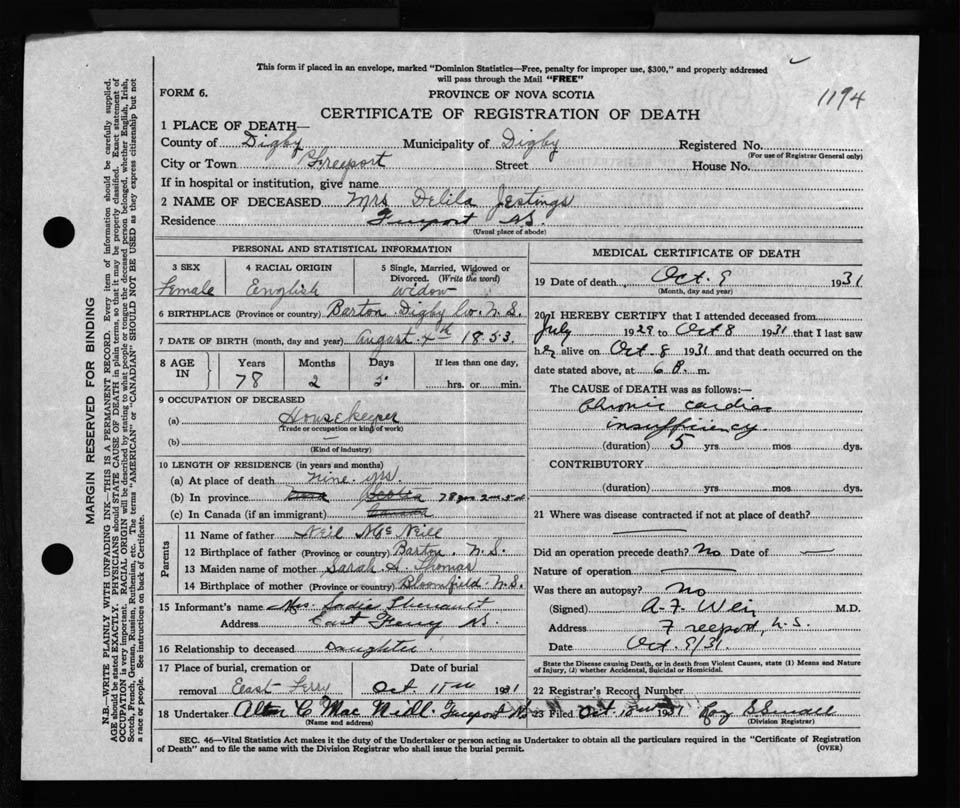 This form if placed in an envelope, marked "Dominion Statistics—Free, penalty for improper use, $300," and properly addressed
will pass through the Mail "FREE"
FORM 6.
PROVINCE OF NOVA SCOTIA
1194
CERTIFICATE OF REGISTRATION OF DEATH
1 PLACE OF DEATH—
County of Digby Municipality of Digby Registered No.
(For use of Registrar General only)
City or Town Freeport Street House No.
If in hospital or institution, give name
2 NAME OF DECEASED Mrs Delila Jestings
Residence Freeport N.S.
(Usual place of abode)
PERSONAL AND STATISTICAL INFORMATION
3 SEX
Female
4 RACIAL ORIGIN
English
5 Single, Married, Widowed or
Divorced. (Write the word)
widow
6 BIRTHPLACE (Province or country) Barton Digby Co. N.S.
7 DATE OF BIRTH (month, day and year) August 4th 1853
8 AGE
IN
Years
78
Months
2
Days
5
If less than one day,
hrs. or min.
9 OCCUPATION OF DECEASED
(a) Housekeeper
(Trade or occupation or kind of work)
(b) —
(Kind of industry)
10 LENGTH OF RESIDENCE (in years and months)
(a) At place of death nine yrs.
(b) In province Scotia 78 yrs 2 mos 5 d
(c) In Canada (if an immigrant) Canada
Parents
11 Name of father Neil McNeill
12 Birthplace of father (Province or country) Barton. N.S.
13 Maiden name of mother Sarah A. Thomas
14 Birthplace of mother (Province or country) Bloomfield N.S.
15 Informant's name Mrs. Sadie Theriault
Address East Ferry N.S.
16 Relationship to deceased Daughter
17 Place of burial, cremation or
removal East Ferry
Date of burial
Oct 11th 1931
18 Undertaker Alton C. MacNeill Freeport N.S.
(Name and address)
MEDICAL CERTIFICATE OF DEATH
19 Date of death Oct. 9 1931
(Month, day and year)
20 I HEREBY CERTIFY that I attended deceased from
July 1929 to Oct 8 1931 that I last saw
her alive on Oct. 8 1931 and that death occurred on the
date stated above, at 6 P. m.
The CAUSE OF DEATH was as follows:—
Chronic cardiac
insufficiency.
(duration) 5 yrs mos dys.
CONTRIBUTORY
(duration) yrs. mos. dys.
21 Where was disease contracted if not at place of death?
Did an operation precede death? No Date of —
Nature of operation
Was there an autopsy? No
(Signed) A. F. Weir M.D.
Address Freeport, N.S.
Date Oct. 9/31.
State the Disease causing Death, or in death from Violent Causes, state (1) Means and Nature
of Injury, (2) whether Accidental, Suicidal or Homicidal.
22 Registrar's Record Number
23 Filed Oct 10 1931 Roy S Small
(Division Registrar)
SEC. 46—Vital Statistics Act makes it the duty of the Undertaker or person acting as Undertaker to obtain all the particulars required in the "Certificate of Registration
of Death" and to file the same with the Division Registrar who shall issue the burial permit.
(OVER)
MARGIN RESERVED FOR BINDING
N.B.—WRITE PLAINLY WITH UNFADING INK—THIS IS A PERMANENT RECORD. Every item of information should be carefully supplied.
AGE should be stated EXACTLY. PHYSICIANS should STATE CAUSE OF DEATH in plain terms, so that it may be properly classified. Exact statement of
OCCUPATION is very important. RACIAL ORIGIN will be described by stating to what people or tongue the deceased person belonged, whether English, Irish,
Scotch, French, German, Russian, Ruthenian, etc. The terms "AMERICAN" or "CANADIAN" SHOULD NOT BE USED as they express citizenship but not
a race or people. See instructions on back of Certificate.